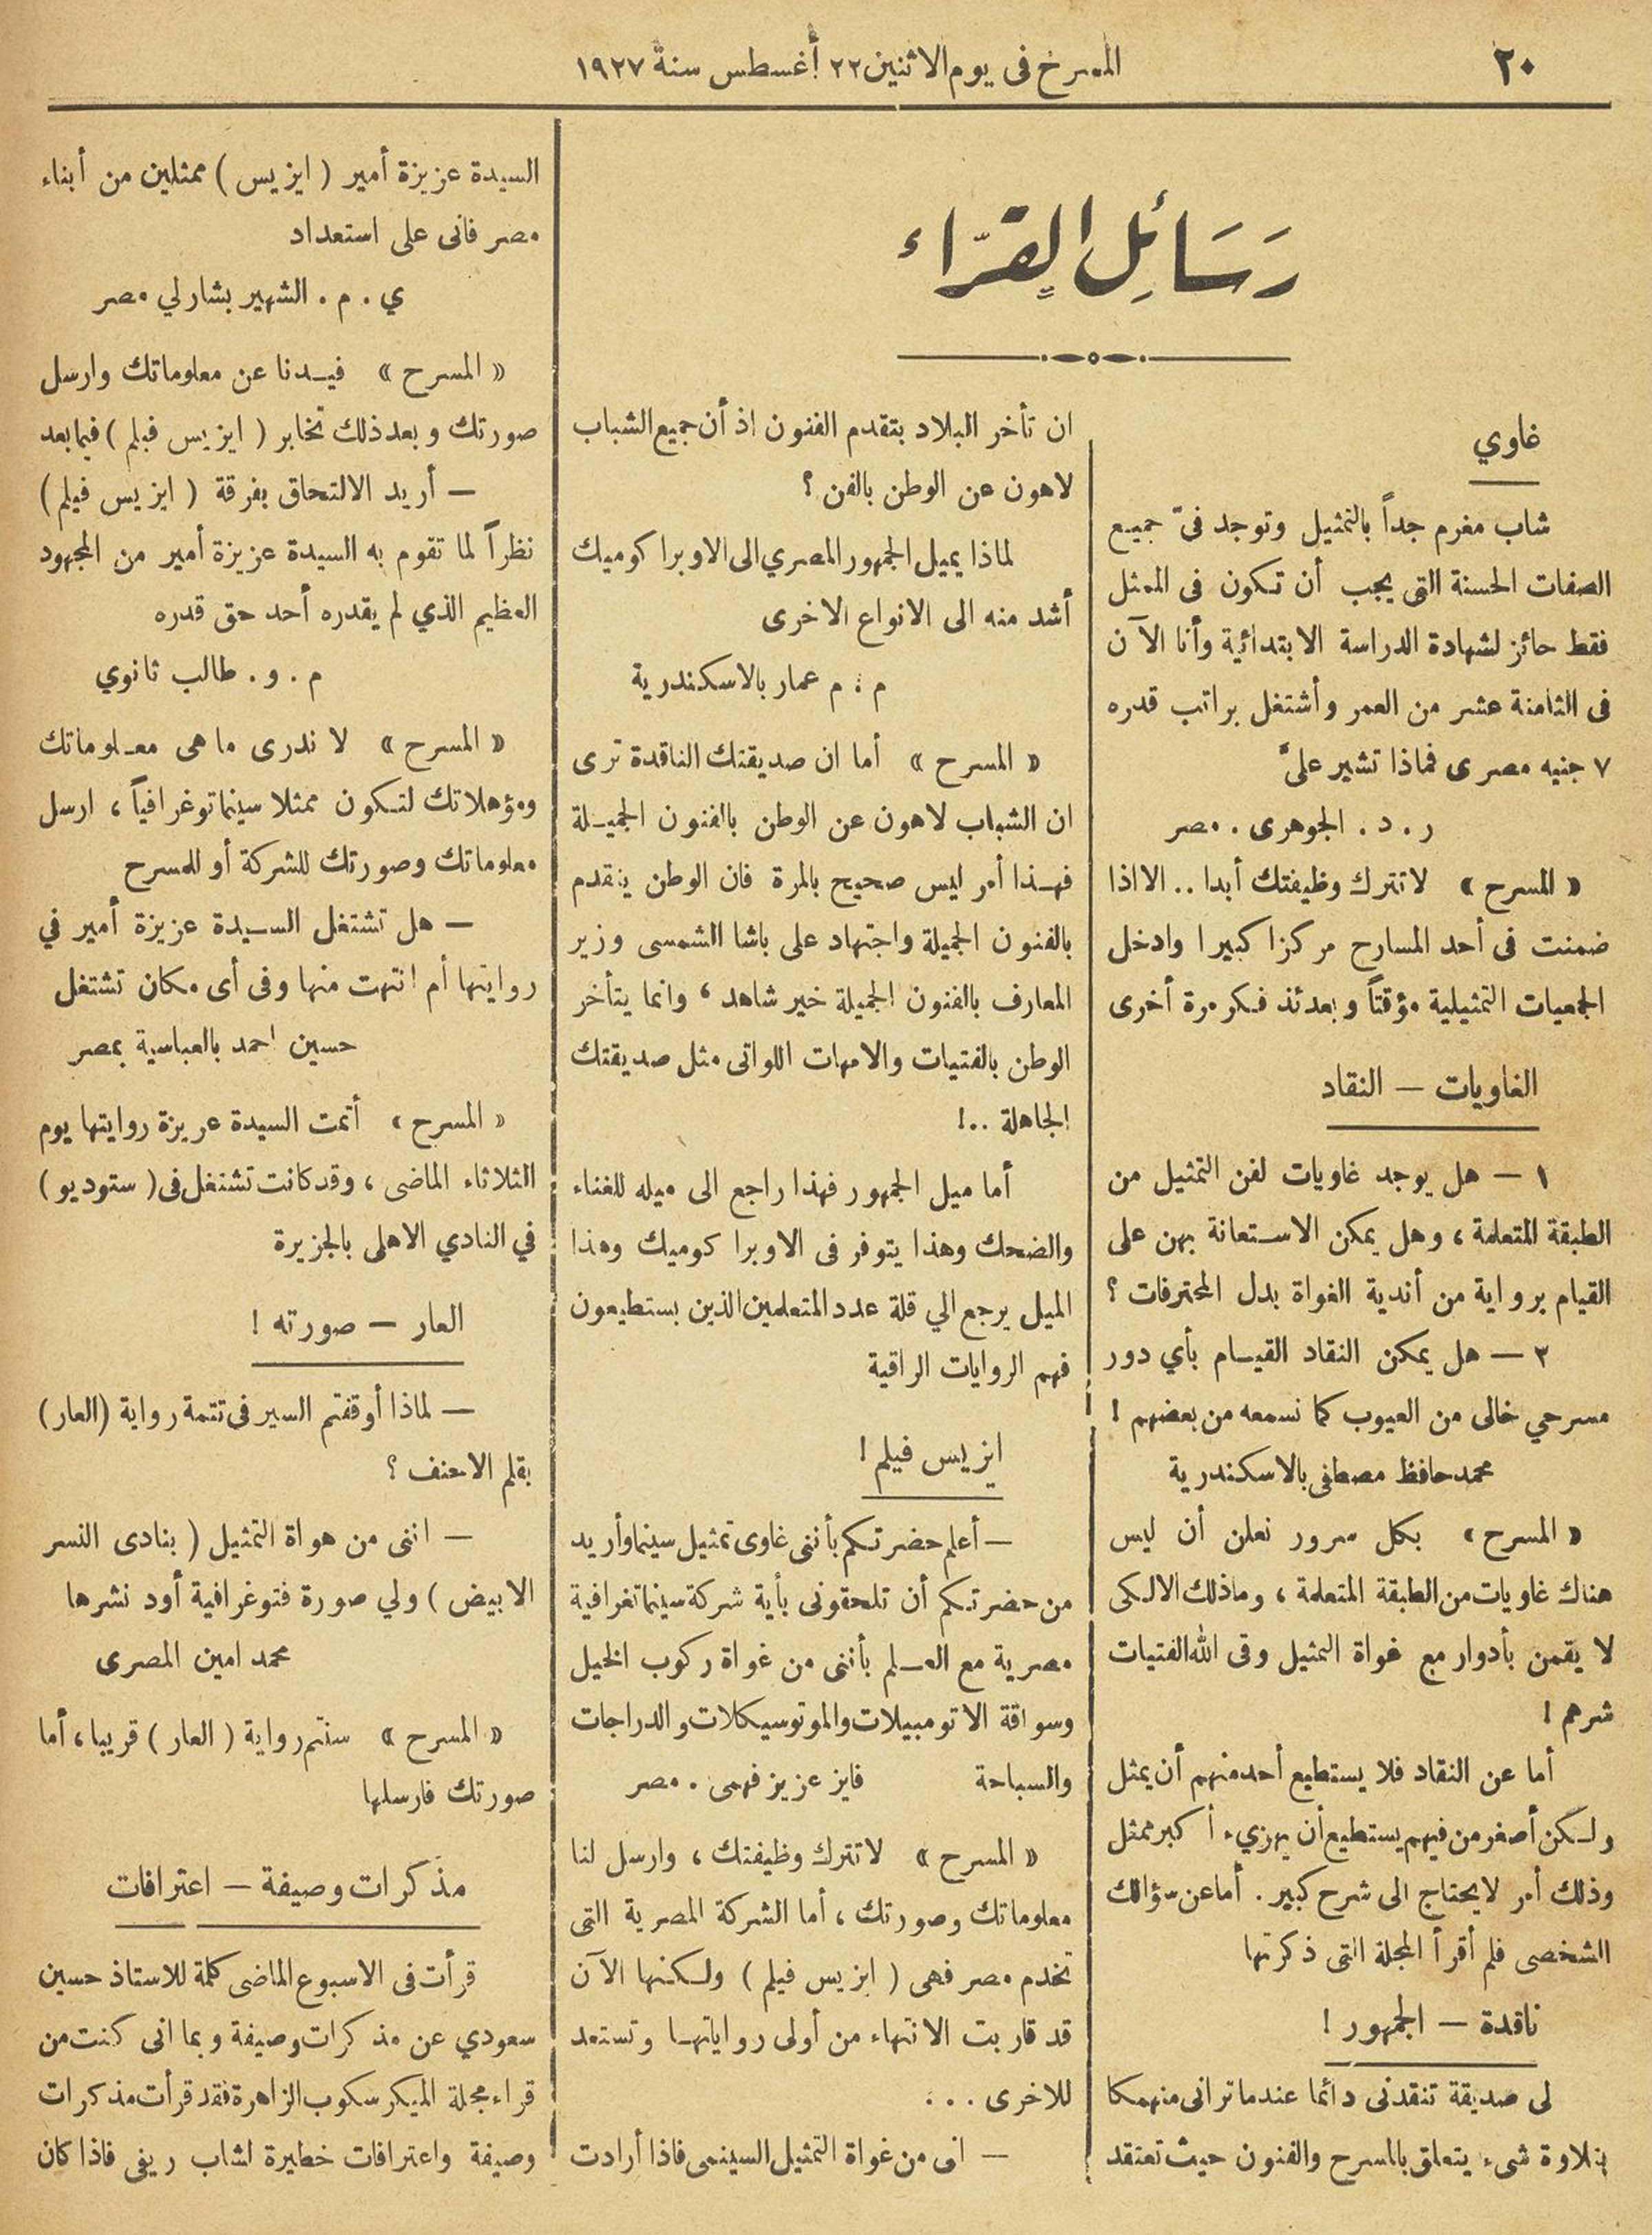 ٢٠
المسرح فى يوم الاثنين ٢٢ أغسطس سنة ١٩٢٧
رَسَائِل القِرّاء
غاوي
شاب مغرم جداً بالتمثيل وتوجد فىّ جميع
الصفات الحسنة التى يجب أن تكون فى الممثل
فقط حائز لشهادة الدراسة الابتدائية وأنا الآن
فى الثامنة عشر من العمر وأشتغل براتب قدره
٧ جنيه مصرى فماذا تشير علىّ
ر . د . الجوهرى . مصر
« المسرح » لا تترك وظيفتك أبدا .. الا اذا
ضمنت فى أحد المسارح مركزا كبيرا وادخل
الجمعيات التمثيلية مؤقتاً وبعدئذ فكر مرة أخرى
الغاويات — النقاد
١ — هل يوجد غاويات لفن التمثيل من
الطبقة المتعلمة ، وهل يمكن الاستعانة بهن على
القيام برواية من أندية الغواة بدل المحترفات ؟
٢ — هل يمكن النقاد القيام بأي دور
مسرحي خالى من العيوب كما نسمعه من بعضهم !
محمد حافظ مصطفى بالاسكندرية
« المسرح » بكل سرور نعلن أن ليس
هناك غاويات من الطبقة المتعلمة ، وماذلك الا لكى
لا يقمن بأدوار مع غواة التمثيل وقى الله الفتيات
شرهم !
أما عن النقاد فلا يستطيع أحد منهم أن يمثل
ولكن أصغر من فيهم يستطيع أن يهزيء أكبر ممثل
وذلك أمر لا يحتاج الى شرح كبير . أما عن سؤالك
الشخصى فلم أقرأ المجلة التى ذكرتها
ناقدة — الجمهور !
لى صديقة تنقدنى دائما عندما ترانى منهمكا
بتلاوة شىء يتعلق بالمسرح والفنون حيث تعتقد
ان تأخر البلاد بتقدم الفنون اذ أن جميع الشباب
لاهون عن الوطن بالفن ؟
لماذا يميل الجمهور المصري الى الاوبرا كوميك
أشد منه الى الانواع الاخرى
م . م عمار بالاسكندرية
« المسرح » أما ان صديقتك الناقدة ترى
ان الشباب لاهون عن الوطن بالفنون الجميلة
فهذا أمر ليس صحيح بالمرة فان الوطن يتقدم
بالفنون الجميلة واجتهاد على باشا الشمسى وزير
المعارف بالفنون الجميلة خير شاهد ، وانما يتأخر
الوطن بالفتيات والامهات اللواتى مثل صديقتك
الجاهلة ..!
أما ميل الجمهور فهذا راجع الى ميله للغناء
والضحك وهذا يتوفر فى الاوبرا كوميك وهذا
الميل يرجع الي قلة عدد المتعلمين الذين يستطيعون
فهم الروايات الراقية
ايزيس فيلم !
— أعلم حضرتكم بأننى غاوى تمثيل سينما وأريد
من حضرتكم أن تلحقونى بأية شركة سينماتغرافية
مصرية مع العلم بأننى من غواة ركوب الخيل
وسواقة الاتومبيلات والموتوسيكلات والدراجات
والسباحة فايز عزيز فهمى . مصر
« المسرح » لا تترك وظيفتك ، وارسل لنا
معلوماتك وصورتك ، أما الشركة المصرية التى
تخدم مصر فهى ( ايزيس فيلم ) ولكنها الآن
قد قاربت الانتهاء من أولى رواياتها وتستعد
للاخرى . . .
— انى من غواة التمثيل السينمى فاذا أرادت
السيدة عزيزة أمير ( ايزيس ) ممثلين من أبناء
مصر فانى على استعداد
ي . م . الشهير بشارلي مصر
« المسرح » فيدنا عن معلوماتك وارسل
صورتك وبعد ذلك تخابر ( ايزيس فيلم ) فيما بعد
— أريد الالتحاق بفرقة ( ايزيس فيلم )
نظراً لما تقوم به السيدة عزيزة أمير من المجهود
العظيم الذي لم يقدره أحد حق قدره
م . و . طالب ثانوي
« المسرح » لا ندرى ما هى معلوماتك
ومؤهلاتك لتكون ممثلا سينماتوغرافياً ، ارسل
معلوماتك وصورتك للشركة أو للمسرح
— هل تشتغل السيدة عزيزة أمير في
روايتها أم انتهت منها وفى أى مكان تشتغل
حسين احمد بالعباسية بمصر
« المسرح » أتمت السيدة عزيزة روايتها يوم
الثلاثاء الماضى ، وقد كانت تشتغل فى ( ستوديو )
في النادي الاهلى بالجزيرة
العار — صورته !
— لماذا أوقفتم السير فى تتمة رواية (العار)
بقلم الاحنف ؟
— اننى من هواة التمثيل ( بنادى النسر
الابيض ) ولي صورة فتوغرافية أود نشرها
محمد امين المصرى
« المسرح » ستتم رواية ( العار ) قريبا ، أما
صورتك فارسلها
مذكرات وصيفة — اعترافات
قرأت فى الاسبوع الماضى كلمة للاستاذ حسين
سعودي عن مذكرات وصيفة وبما انى كنت من
قراء مجلة الميكرسكوب الزاهرة فقد قرأت مذكرات
وصيفة واعترافات خطيرة لشاب ريفى فاذا كان